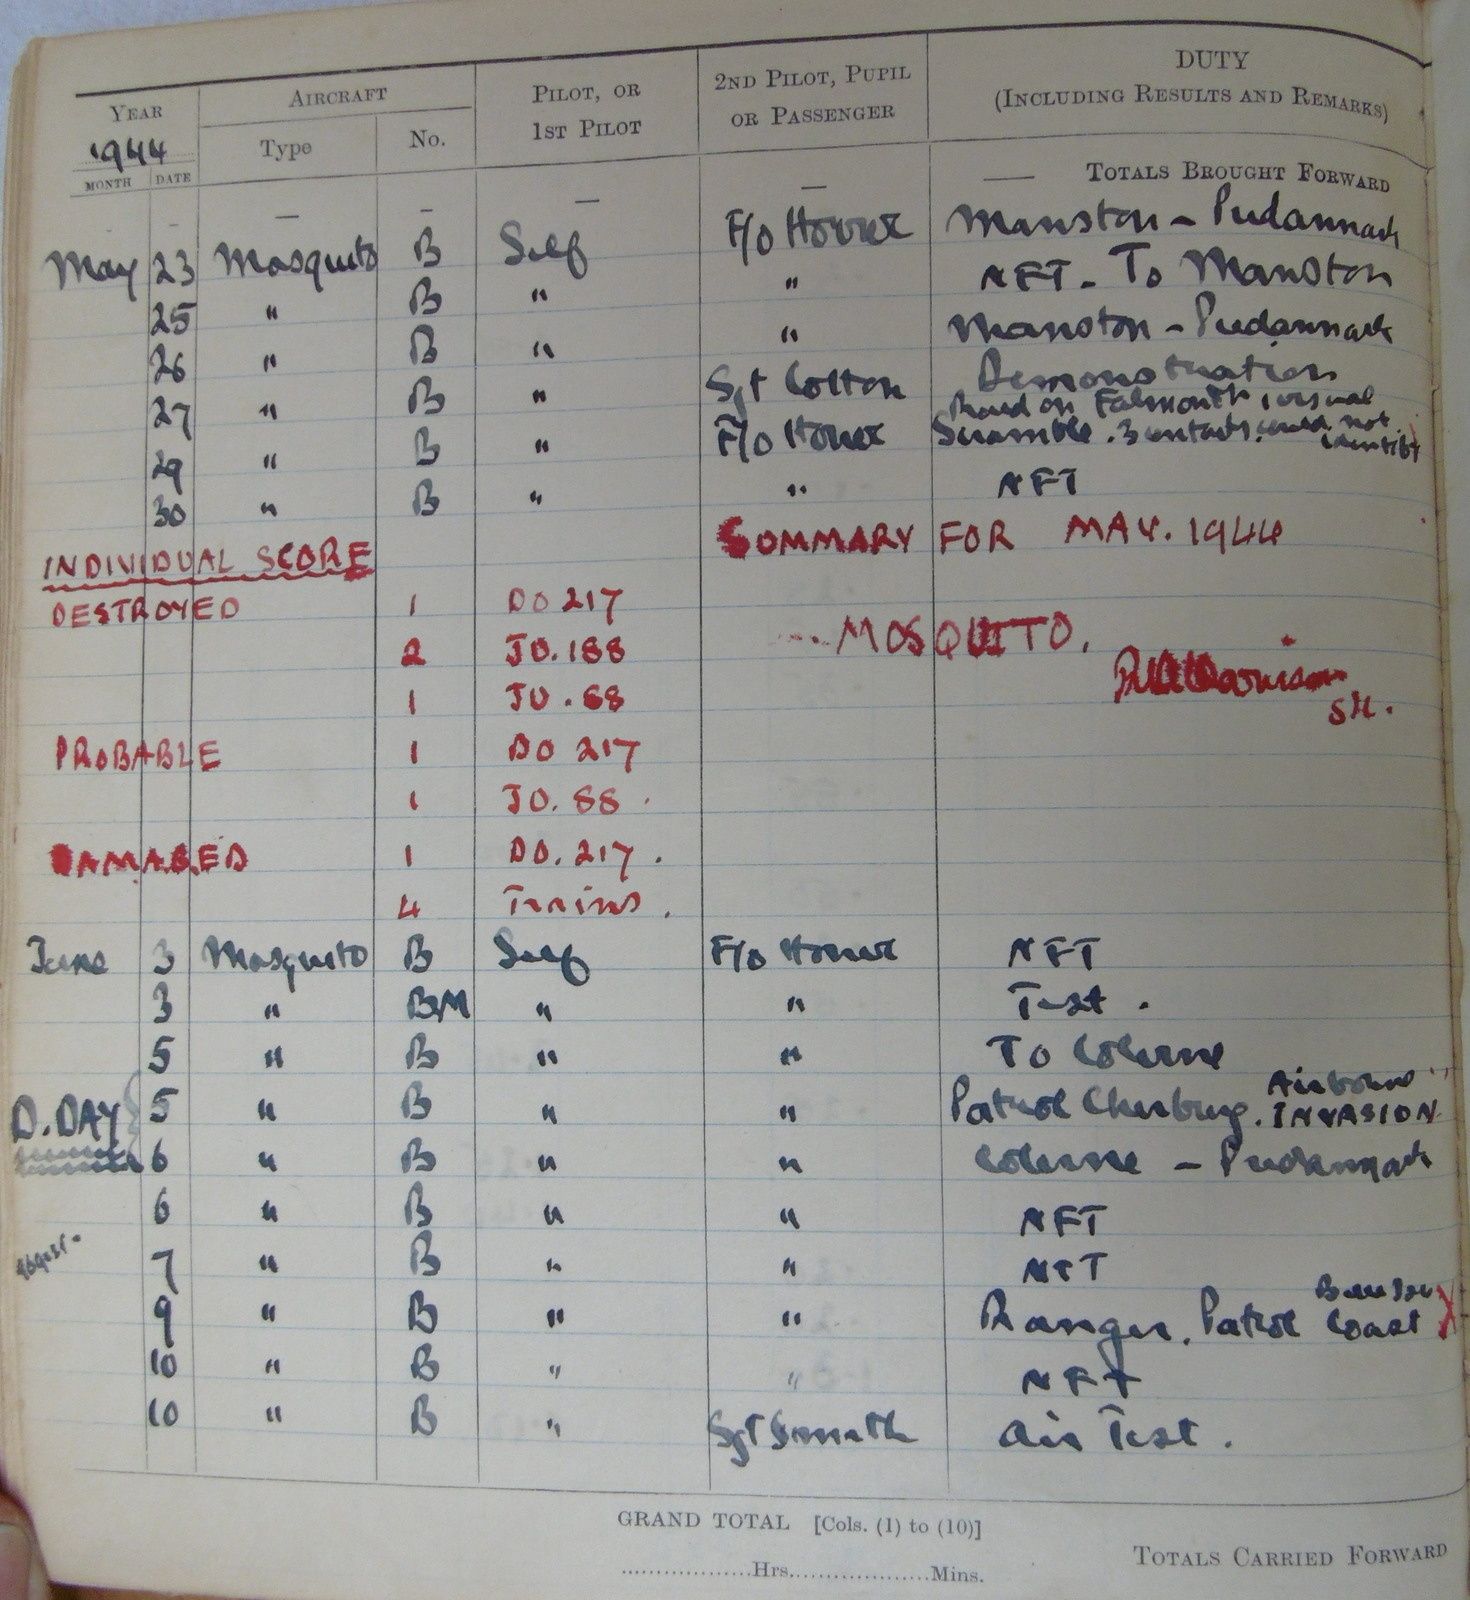 YEAR AIRCRAFT PILOT, OR 2ND PILOT, PUPIL DUTY
1944 Type No. 1ST PILOT OR PASSENGER (INCLUDING RESULTS AND REMARKS)
MONTH DATE
— — — — — TOTALS BROUGHT FORWARD
May 23 Mosquito B Self F/O Horrex Manston - Predannack
25 " B " " NFT - To Manston
26 " B " " Manston - Predannack
27 " B " Sgt Cotton Demonstration
Raid on Falmouth, 1 visual
29 " B " F/O Horrex Scramble. 3 contacts, could not identify
30 " B " " NFT
SUMMARY FOR MAY. 1944
INDIVIDUAL SCORE
DESTROYED 1 DO 217
MOSQUITO.
2 JU. 188
1 JU. 88
S/L.
PROBABLE 1 DO 217
1 JU. 88.
DAMAGED 1 DO. 217.
4 Trains.
June 3 Mosquito B Self F/O Horrex NFT
3 " BM " " Test.
5 " B " " To Colerne
D. DAY 5 " B " " Patrol Cherburg. Airborne INVASION
6 " B " " Colerne - Predannack
6 " B " " NFT
7 " B " " NFT
9 " B " " Ranger. Patrol Coast X
10 " B " " NFT
10 " B " Sgt Smith Air Test.
GRAND TOTAL [Cols. (1) to (10)]
TOTALS CARRIED FORWARD
...................Hrs....................Mins.